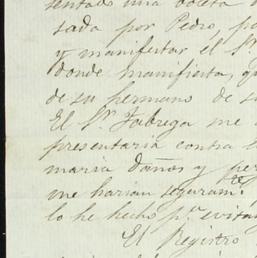 sentado una boleta d
sada por Pedro, p
y manifestar el Sr
donde manifiesta, q
de su hermano de s
El Sr. Fabrega me
presentaria contra l
maria daños y per
me harian seguramte
lo he hecho pa. evita
El Registro